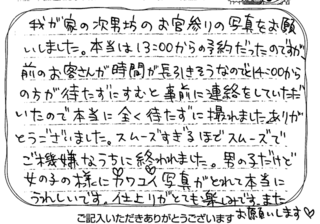 我が家の次男坊のお宮参りの写真をお願
いしました。本当は13:00からの予約だったのですが、
前のお客さんが時間が長引きそうなので14:00から
の方が待たずにすむと事前に連絡をしていただ
いたので本当に全く待たずに撮れました。ありが
とうございました。スムーズすぎるほどスムーズで
ご機嫌なうちに終われました。男の子だけど
女の子の様にカワユイ写真がとれて本当に
うれしいです。仕上りがとても楽しみです。また
お願いします♡
ご記入いただきありがとうございます